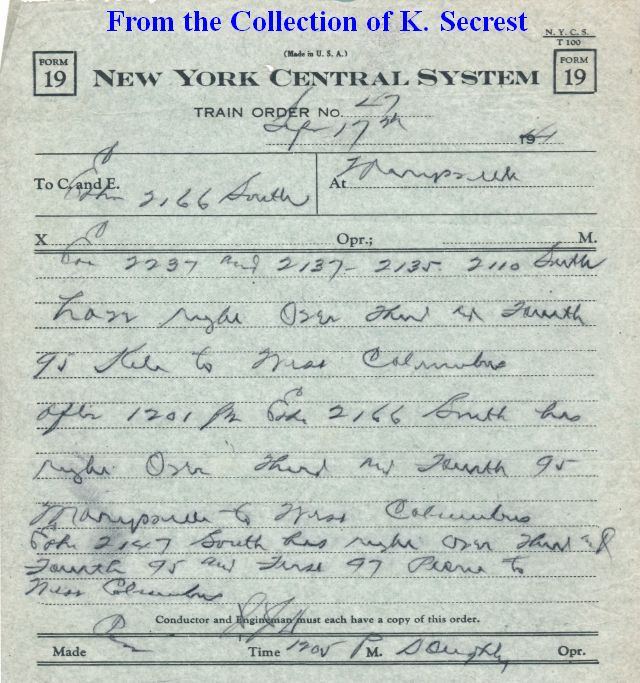 From the Collection of K. Secrest
N. Y. C. S.
T 100
(Made in U. S. A.)
FORM
19
NEW YORK CENTRAL SYSTEM
FORM
19
TRAIN ORDER NO. 47
17th
19
To C. and E. 2166 South
At Marysville
X Opr.; M.
2237 and 2137 - 2135 2110 South
have right Over Third and Fourth
95 Kile to West Columbus
after 1201 pm 2166 South has
right Over Third and Fourth 95
Marysville to West Columbus
2147 South has right over Third and
Fourth 95 and First 97 Peoria to
West Columbus
Conductor and Engineman must each have a copy of this order.
Made Time 1205 P M. Opr.